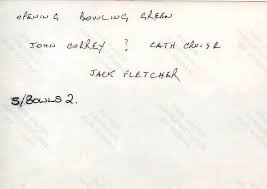 OPENING BOWLING GREEN
JOHN CORREY ? CATH CROISE
JACK FLETCHER
S/BOWLS 2.